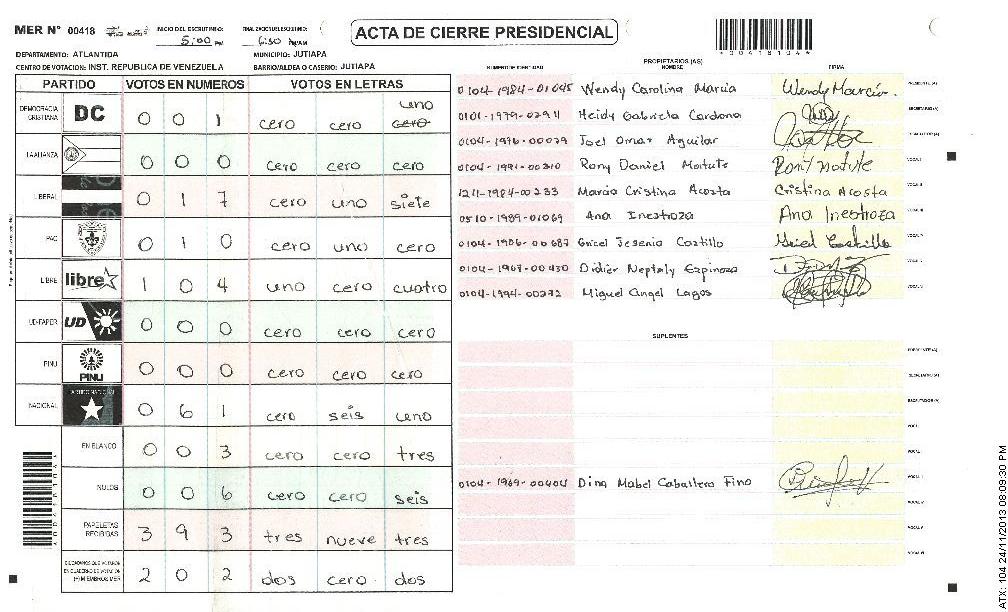 MER Nº 00418 INICIO DEL ESCRUTINIO: 5:00 PM FINALIZACION DE ESCRUTINIO: 6:30 PM/AM
ACTA DE CIERRE PRESIDENCIAL
*00418104*
DEPARTAMENTO: ATLANTIDA MUNICIPIO: JUTIAPA
CENTRO DE VOTACION: INST. REPUBLICA DE VENEZUELA BARRIO/ALDEA O CASERIO: JUTIAPA
PARTIDO VOTOS EN NUMEROS VOTOS EN LETRAS
DEMOCRACIA CRISTIANA DC 0 0 1 cero cero cero uno
LA ALIANZA 0 0 0 cero cero cero
LIBERAL 0 1 7 cero uno siete
PAC 0 1 0 cero uno cero
LIBRE libre 1 0 4 uno cero cuatro
UD-FAPER UD 0 0 0 cero cero cero
PINU PINU 0 0 0 cero cero cero
NACIONAL PARTIDO NACIONAL 0 6 1 cero seis uno
EN BLANCO 0 0 3 cero cero tres
NULOS 0 0 6 cero cero seis
PAPELETAS RECIBIDAS 3 9 3 tres nueve tres
CIUDADANOS QUE VOTARON EN CUADERNO DE VOTACION (+) MIEMBROS MER 2 0 2 dos cero dos
PROPIETARIOS (AS)
NUMERO DE IDENTIDAD NOMBRE FIRMA
0104-1984-01045 Wendy Carolina Marcia Wendy Marcia. PRESIDENTE (A)
0101-1979-02911 Heidy Gabriela Cardona SECRETARIO (A)
0104-1976-00079 Joel Omar Aguilar ESCRUTADOR (A)
0104-1991-00310 Rony Daniel VOCAL I
1211-1984-00233 Marcia Cristina Acosta Cristina Acosta VOCAL II
0510-1989-01069 Ana Inestroza Ana Inestroza VOCAL III
0104-1986-00687 Gricel Jesenia Castillo Gricel Castillo VOCAL IV
0104-1967-00430 Didier Neptaly Espinoza VOCAL V
0104-1994-00272 Miguel Angel Lagos VOCAL VI
SUPLENTES
PRESIDENTE (A)
SECRETARIO (A)
ESCRUTADOR (A)
VOCAL I
VOCAL II
0104-1969-00404 Dina Mabel Caballero Fino VOCAL III
VOCAL IV
VOCAL V
VOCAL VI
ATX: 104 24/11/2013 08:09:30 PM